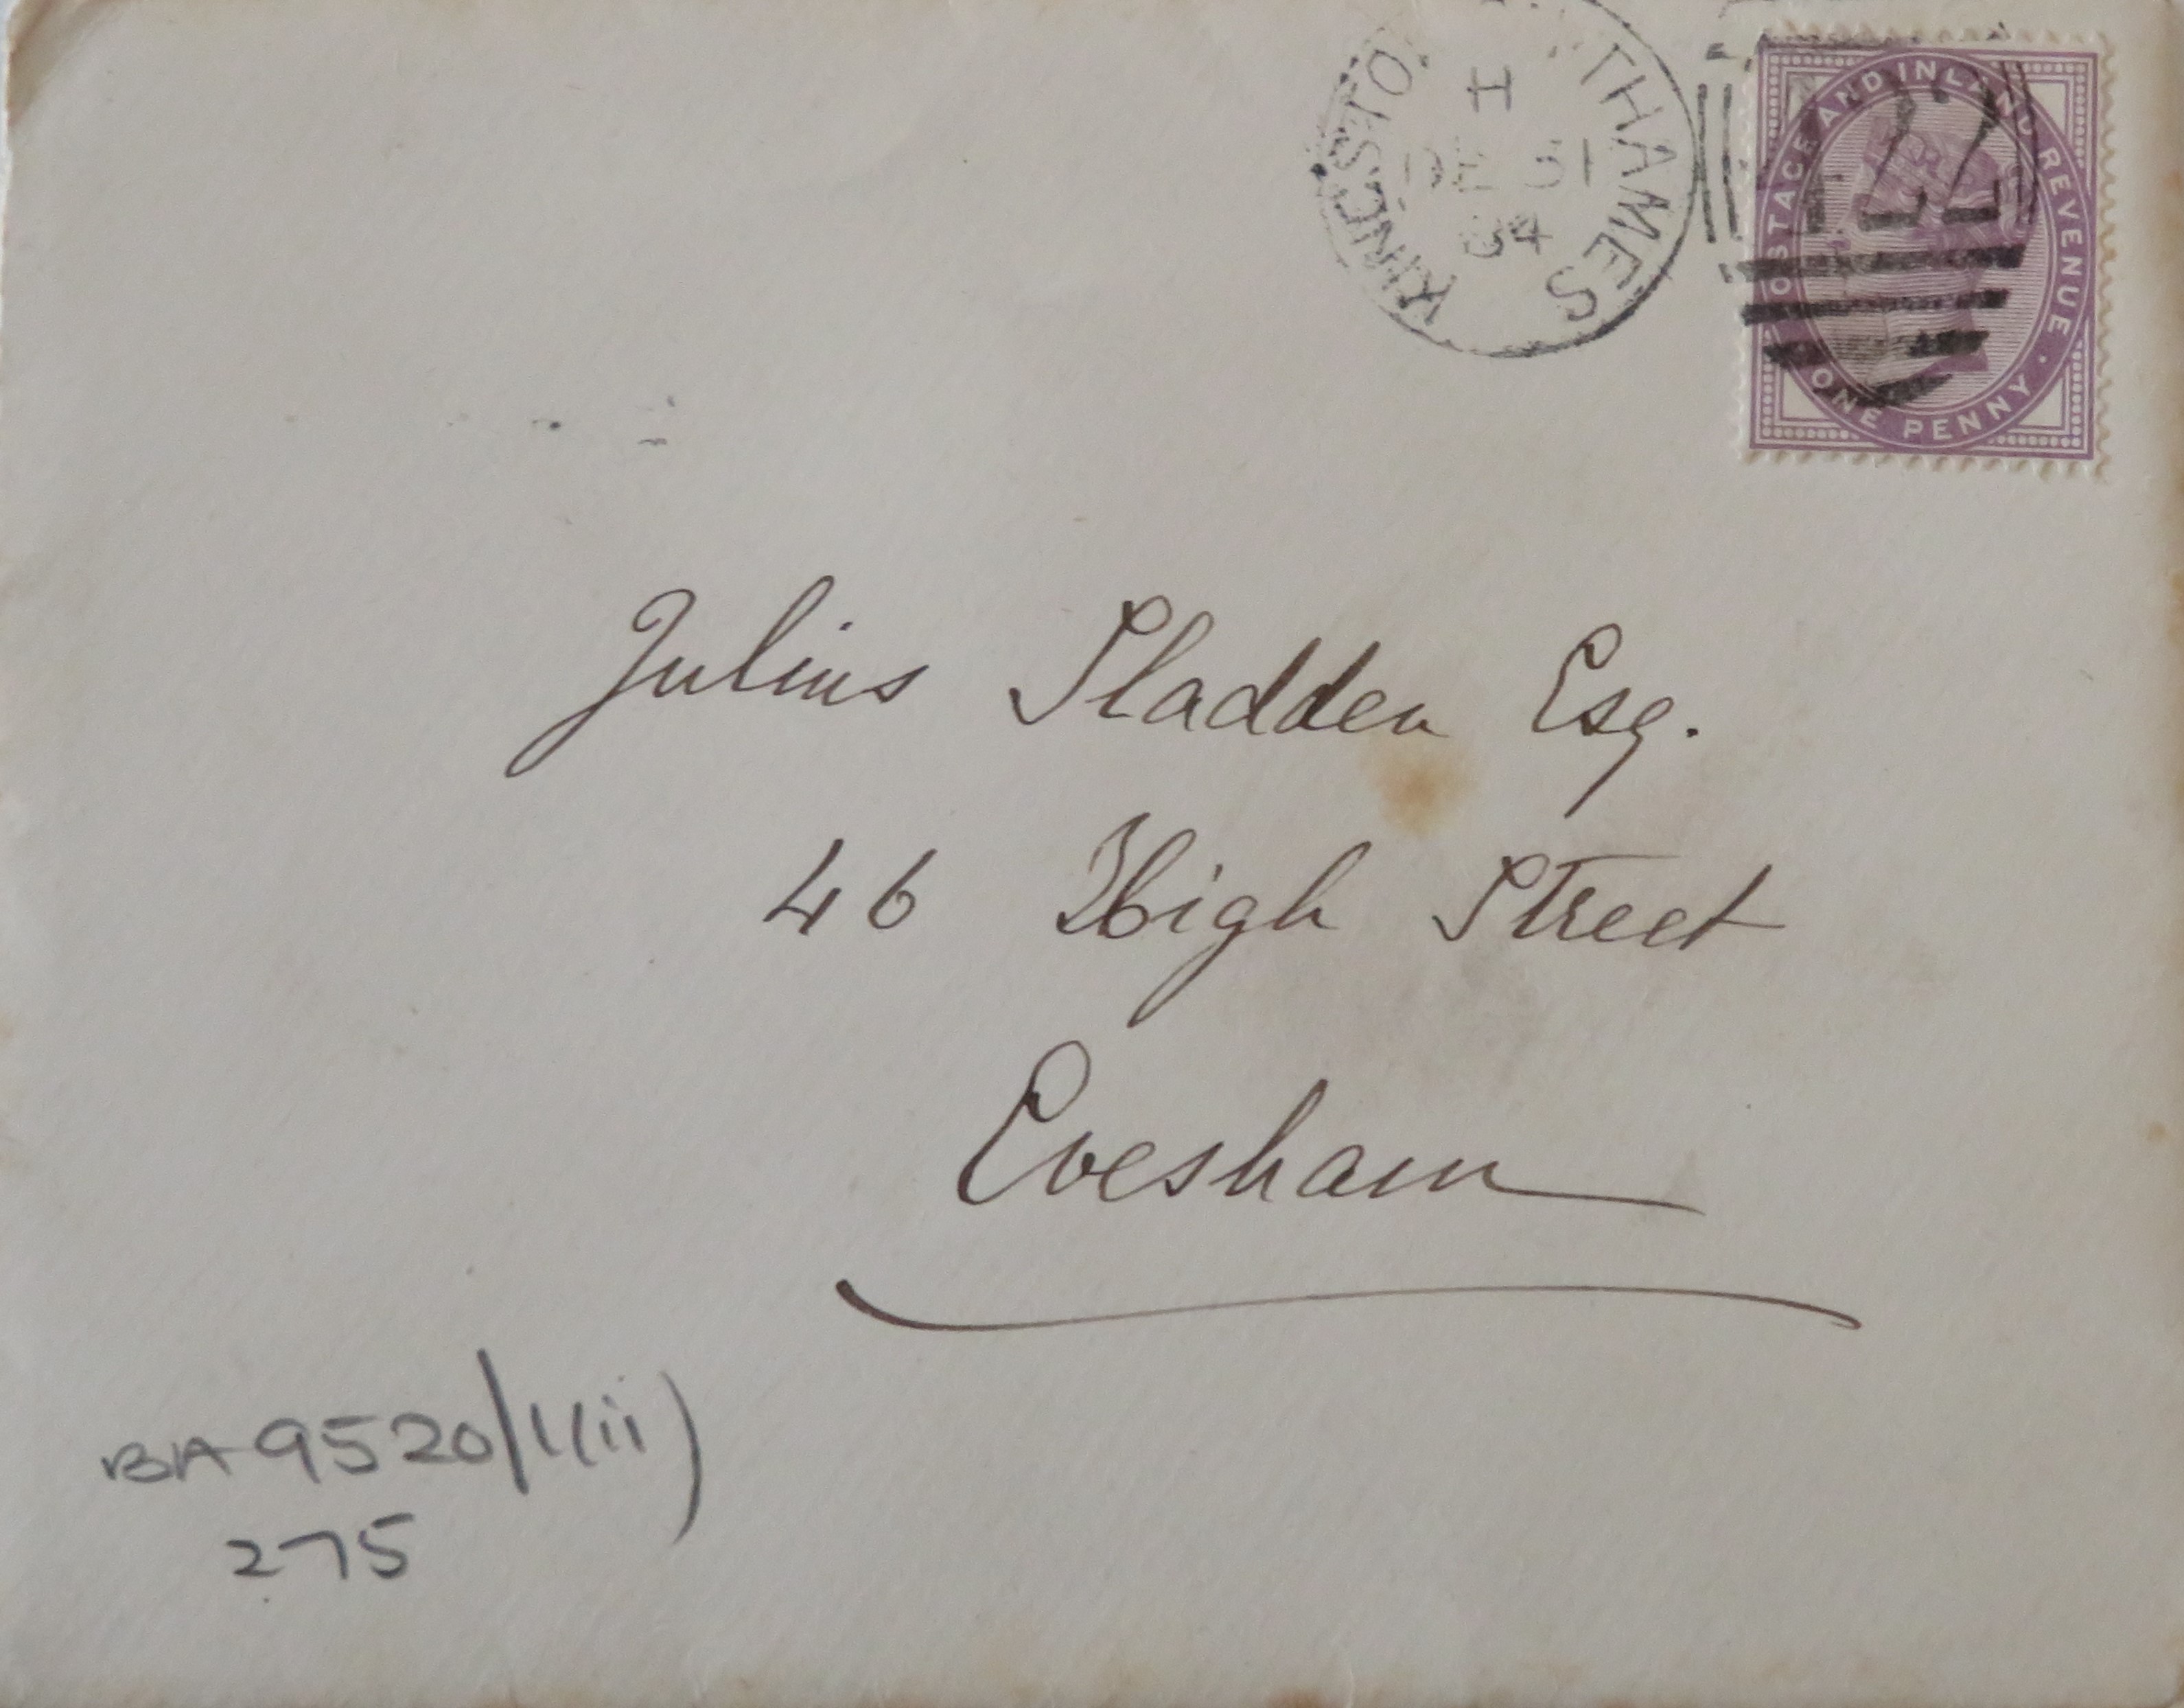 KINGSTO THAMES
H
DE 31
84
POSTAGE AND INLAND REVENUE.
ONE PENNY
Julius Sladden Esq.
46 High Street
Evesham
BA 9520/1(ii)
275